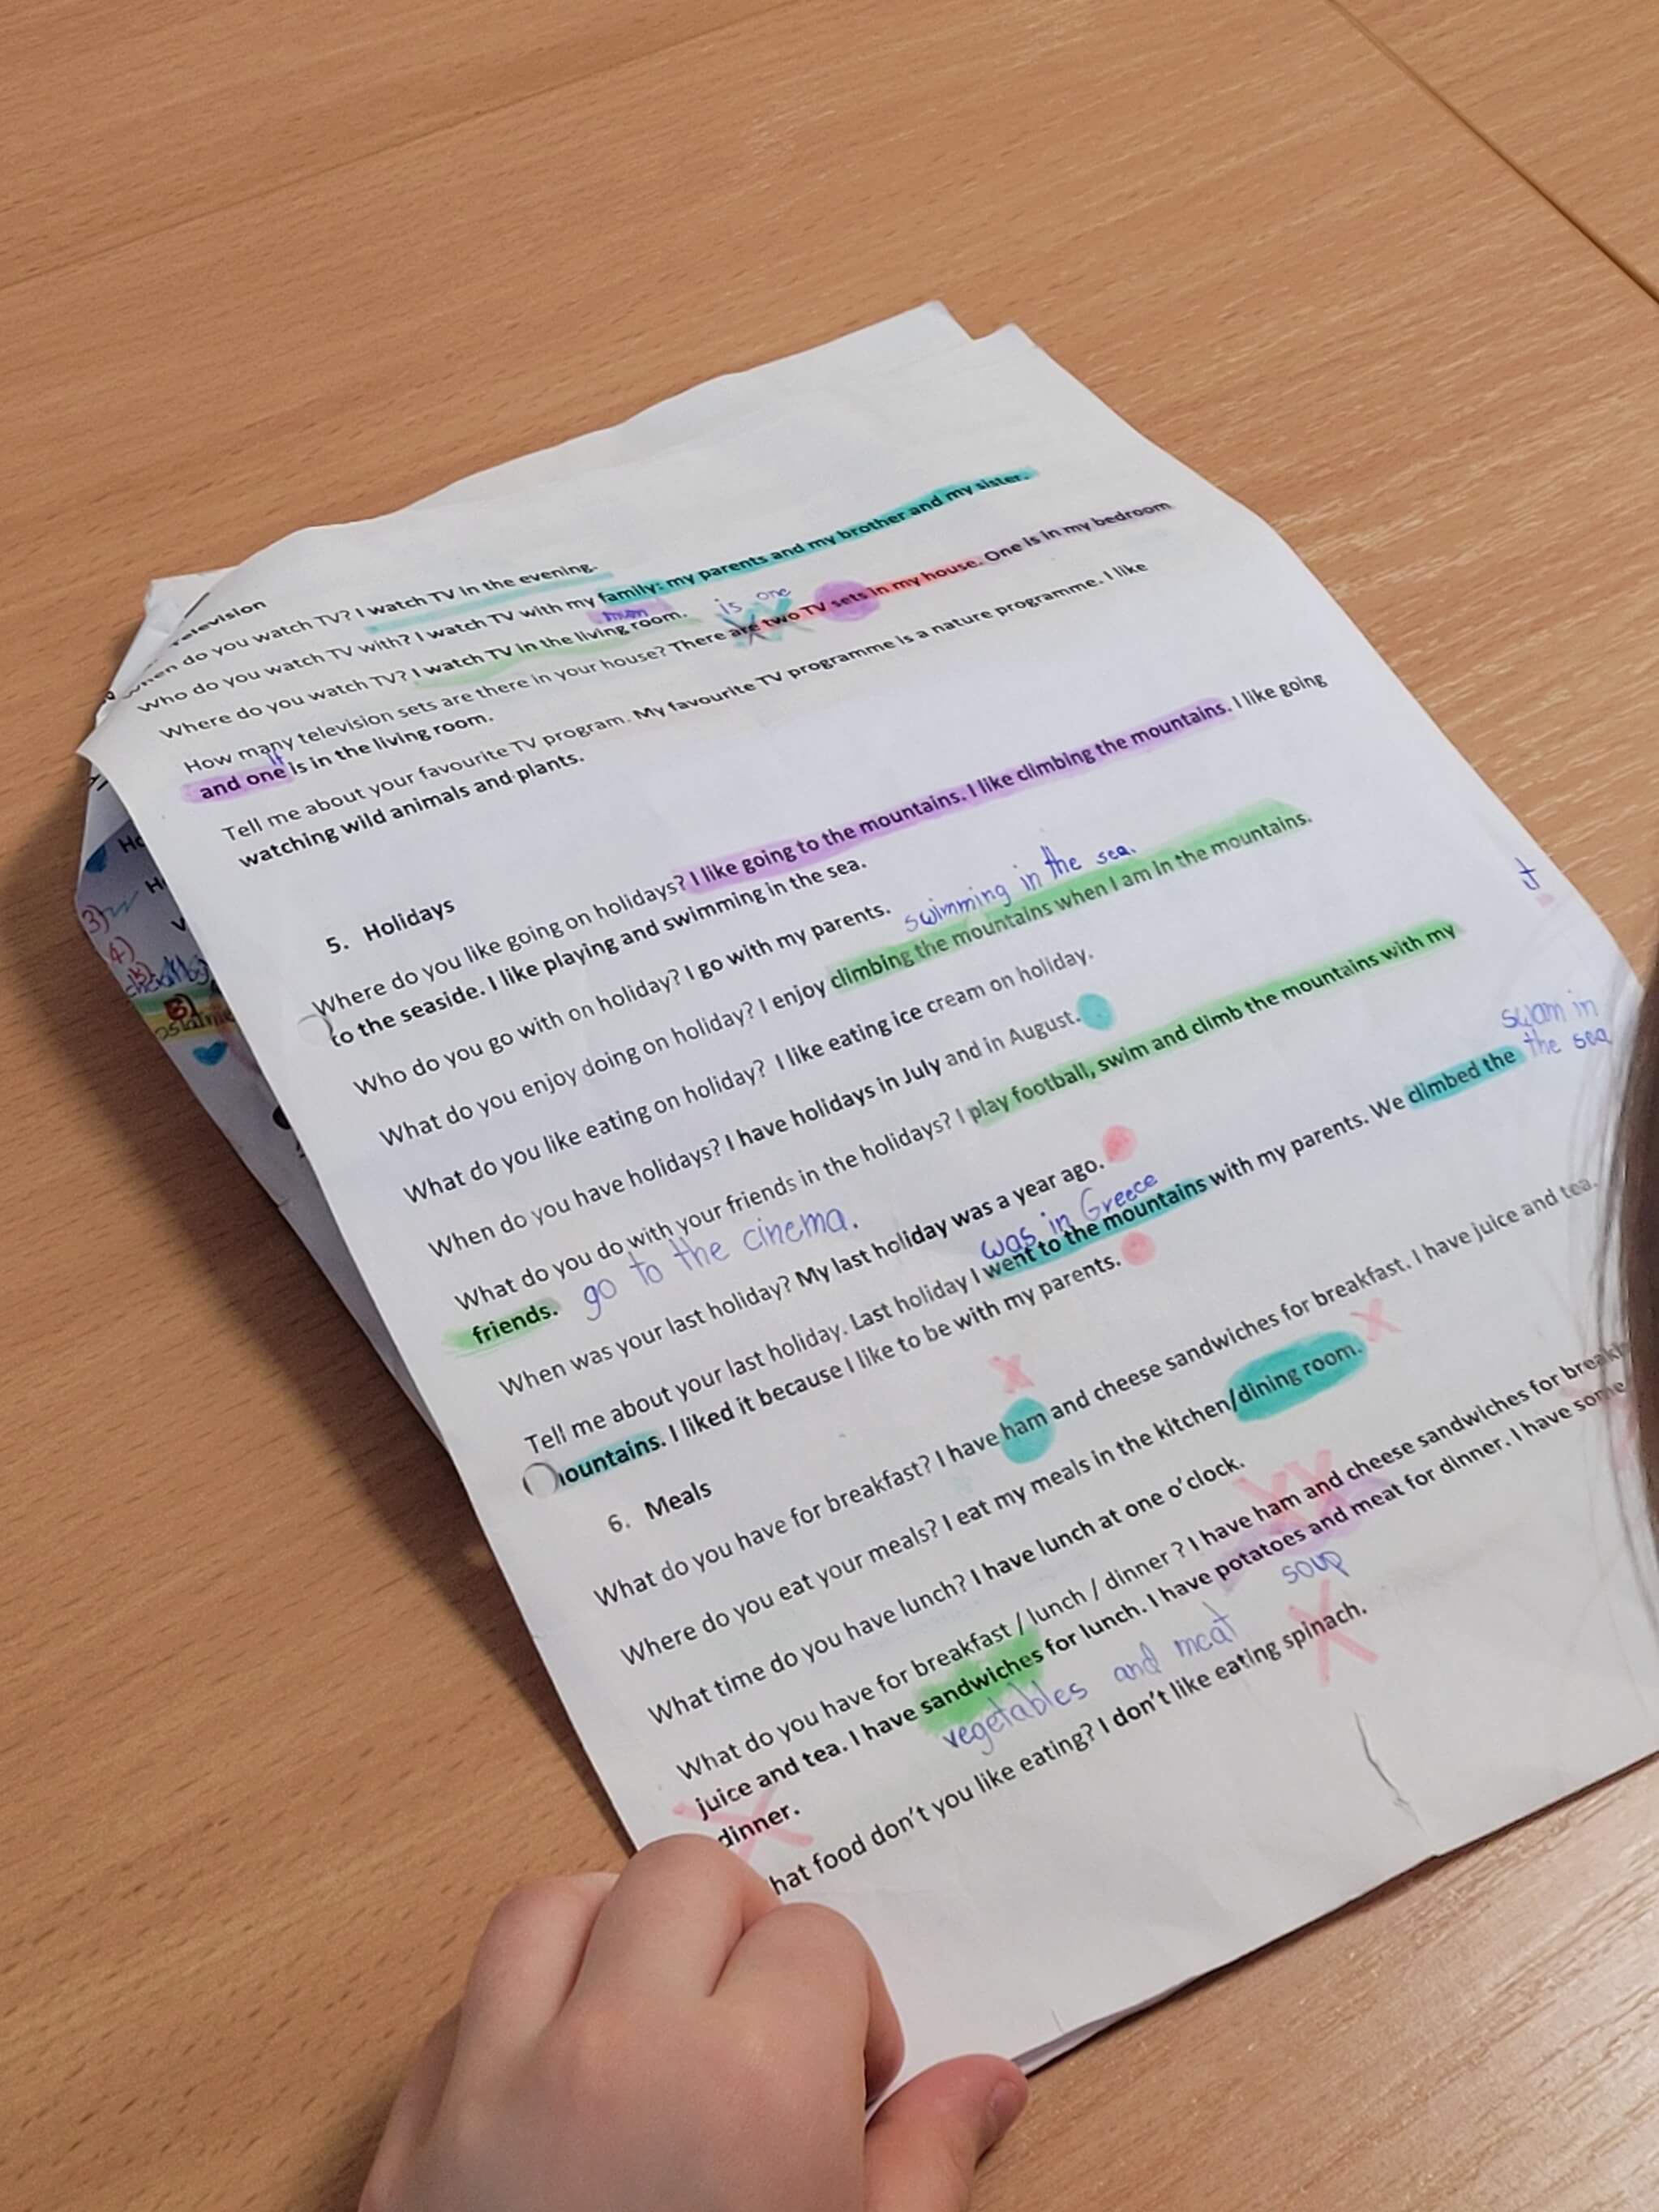 Television
When do you watch TV? I watch TV in the evening.
Who do you watch TV with? I watch TV with my family: my parents and my brother and my sister.
mum
Where do you watch TV? I watch TV in the living room.
is one
How many television sets are there in your house? There are two TV sets in my house. One is in my bedroom
it
and one is in the living room.
Tell me about your favourite TV program. My favourite TV programme is a nature programme. I like
watching wild animals and plants.
5. Holidays
Where do you like going on holidays? I like going to the mountains. I like climbing the mountains. I like going
to the seaside. I like playing and swimming in the sea.
Who do you go with on holiday? I go with my parents.
swimming in the sea.
What do you enjoy doing on holiday? I enjoy climbing the mountains when I am in the mountains.
What do you like eating on holiday? I like eating ice cream on holiday.
When do you have holidays? I have holidays in July and in August.
What do you do with your friends in the holidays? I play football, swim and climb the mountains with my
friends. go to the cinema.
When was your last holiday? My last holiday was a year ago.
was in Greece
swam in
the sea
Tell me about your last holiday. Last holiday I went to the mountains with my parents. We climbed the
mountains. I liked it because I like to be with my parents.
6. Meals
What do you have for breakfast? I have ham and cheese sandwiches for breakfast. I have juice and tea.
Where do you eat your meals? I eat my meals in the kitchen/dining room.
What time do you have lunch? I have lunch at one o'clock.
What do you have for breakfast / lunch / dinner ? I have ham and cheese sandwiches for
juice and tea. I have sandwiches for lunch. I have potatoes and meat for dinner. I have some
soup
vegetables and meat
dinner.
hat food don't you like eating? I don't like eating spinach.
3)
4)